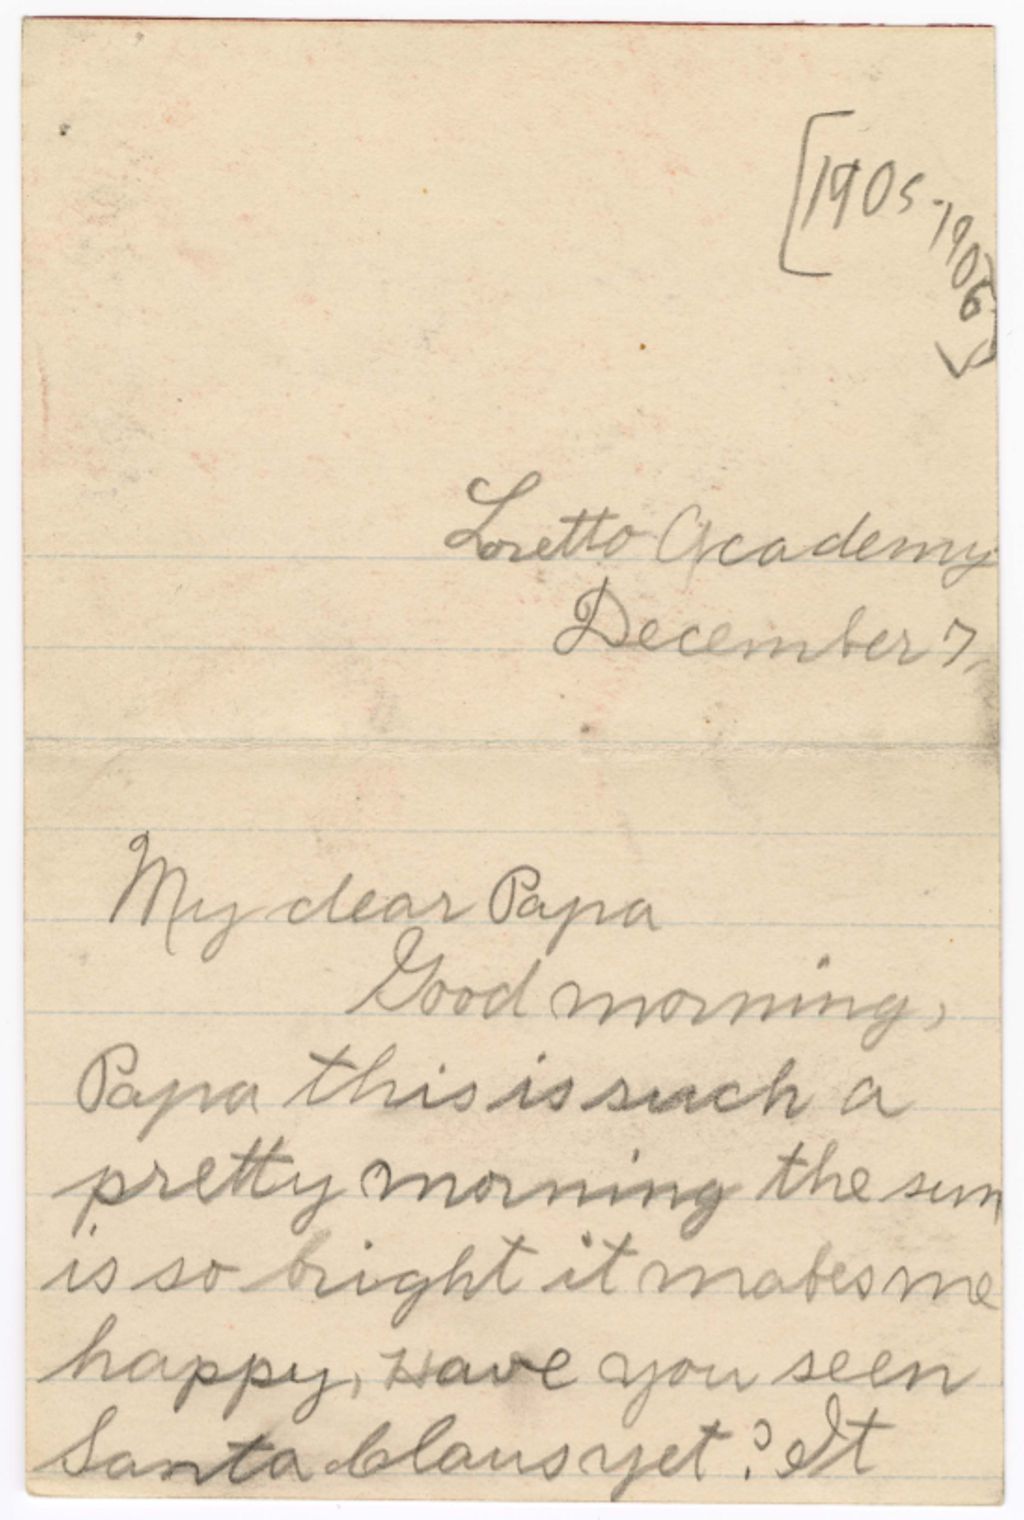 [1905-1906]
Loretto Academy
December 7,
My dear Papa
Good morning,
Papa this is such a
pretty morning the sun
is so bright it makes me
happy, Have you seen
Santa Claus yet? It